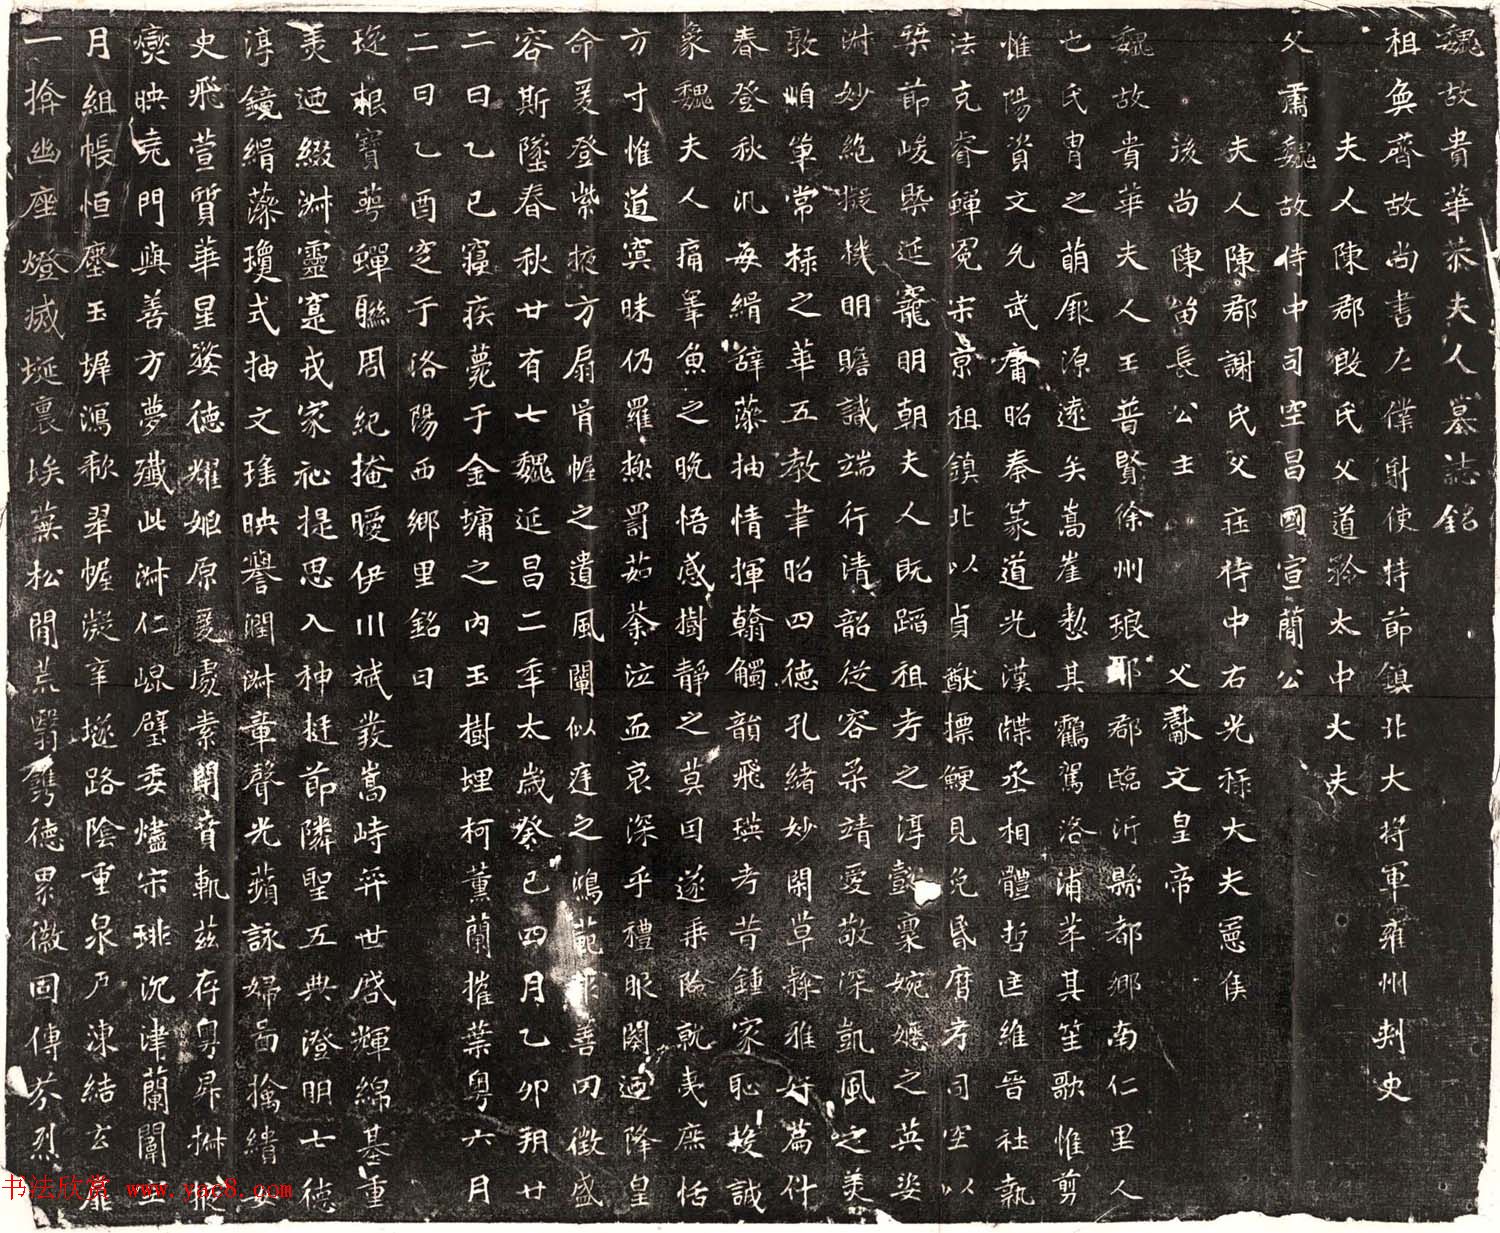 魏故貴華恭夫人墓誌銘
祖奐齊故尚書左僕射使持節鎮北大將軍雍州刾史
夫人陳郡殷氏父道矜太中大夫
父肅魏故侍中司空昌國宣簡公
夫人陳郡謝氏父莊侍中右光祿大夫憲侯
後尚陳留長公主 父獻文皇帝
魏故貴華夫人王普賢徐州琅耶郡臨沂縣都鄉南仁里人
也氏胄之萌厥源遠矣嵩崖懃其鸖駕洛浦萃其笙歌惟剪
惟陽資文允武膺昭秦篆道光漢牒丞相體哲匡維晉社執
法克睿蟬冕宋景祖鎮北以貞猷摽鯁見免昏曆考司空以
槩節峻槩延寵明朝夫人既蹈祖考之淳懿稟婉嬺之英姿
淋妙絶擬機明瞻識端行清韶從容柔靖愛敬深凱風之美
敦順單常棣之華五教聿昭四德孔緒妙閑草隸雅好篇什
春登秋汎每緝辭藻抽情揮翰觸韻飛瑛考昔鍾家恥投誠
象魏夫人痛皋魚之晚悟感樹靜之莫因遂乘險就夷庶恬
方寸惟道冥昧仍羅極罰茹荼泣血哀深乎禮服闋迺降皇
命爰登紫掖方扇胥幄之遺風闡似莛之鴻範報善罔徵盛
容斯墜春秋廿有七魏延昌二年太歲癸巳四月乙卯朔廿
二曰乙巳寢疾薨于金墉之內玉樹埋柯薰蘭摧葉粵六月
二曰乙酉窆于洛陽西鄉里銘曰
瑤根寶萼蟬聯周紀掩曖伊川斌叢嵩峙弈世啓輝綿基重
羙迺綴淋靈寔戎家祉提思入神挺節隣聖五典澄明七德
淳鏡緝藻瓊式抽文瑤映譽潤淋章聲光蘋詠婦啚摛繢女
史飛萱質華星婺德耀姬原爰處素閈賁軌茲存粤昇掖
奱映堯門與善方夢殲此淋仁崐璧委燼宋琲沉津蘭闈
月組帳恒塵玉墀鴻歇翠幄凝辛㙜路陰重泉乃凍結玄扉
一揜幽座燈滅埏裏埃蕪松閒荒翳鐫德累徽罔傳芬烈
書法欣赏 www.yac8.com